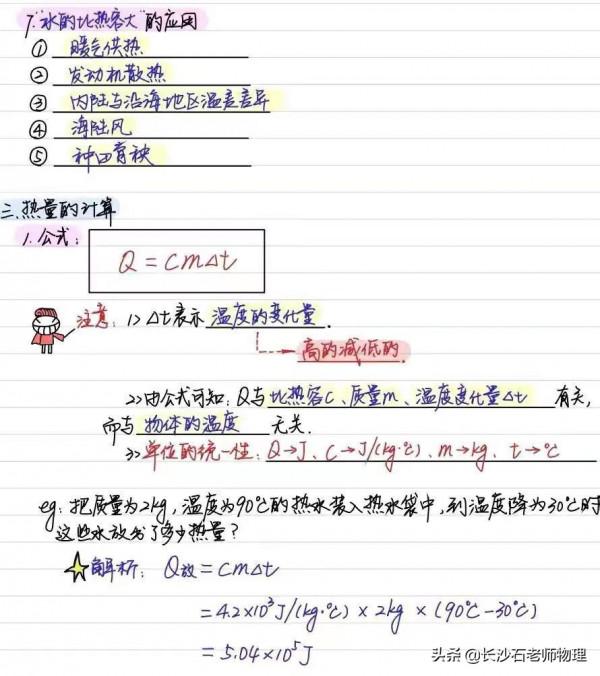 7."水的比热容大"的应用
① 暖气供热
② 发动机散热
③ 内陆与沿海地区温差差异
④ 海陆风
⑤ 种田育秧
三、热量的计算
1.公式: Q=cm△t
注意: 1> △t表示 温度的变化量.
高的减低的.
2>由公式可知: Q与比热容C、质量m、温度变化量△t 有关,
而与 物体的温度 无关.
3>单位的统一性: Q→J、C→J/(kg·℃)、m→kg、t→℃
eg: 把质量为2kg,温度为90℃的热水装入热水袋中,到温度降为30℃时
这些水放出了多少热量?
解析: Q放=cm△t
=4.2×10³J/(kg·℃)×2kg×(90℃-30℃)
=5.04×10⁵J
头条@长沙石老师物理